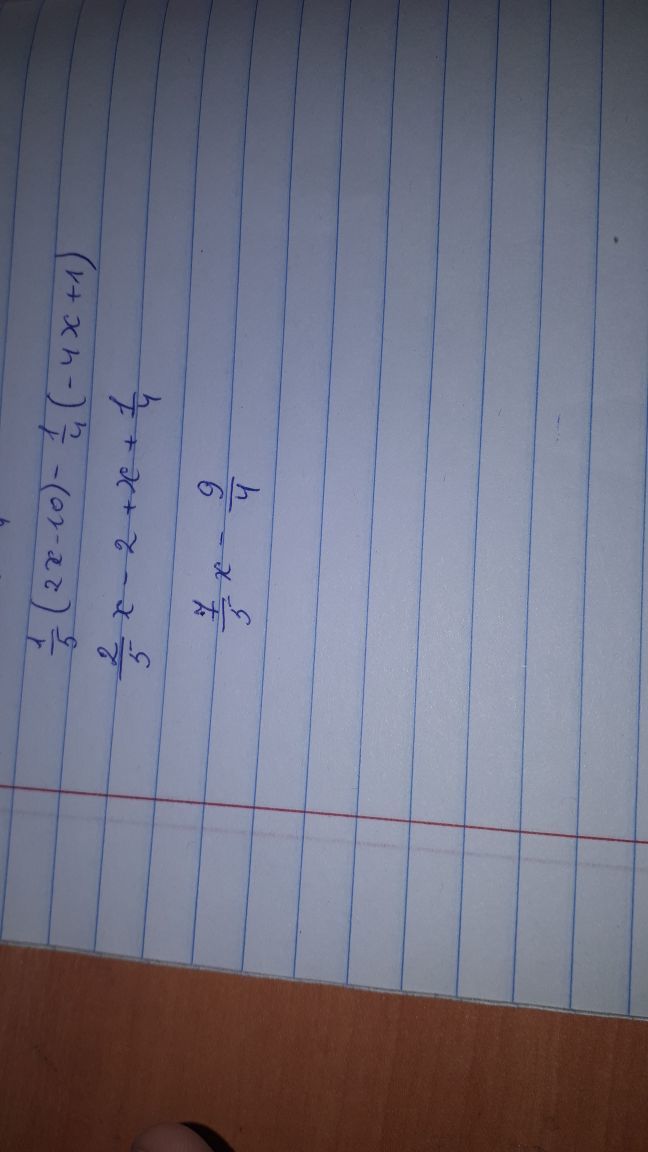 1/5 (2x-10) - 1/4 (-4x+1)
2/5 x - 2 + x + 1/4
7/5 x - 9/4